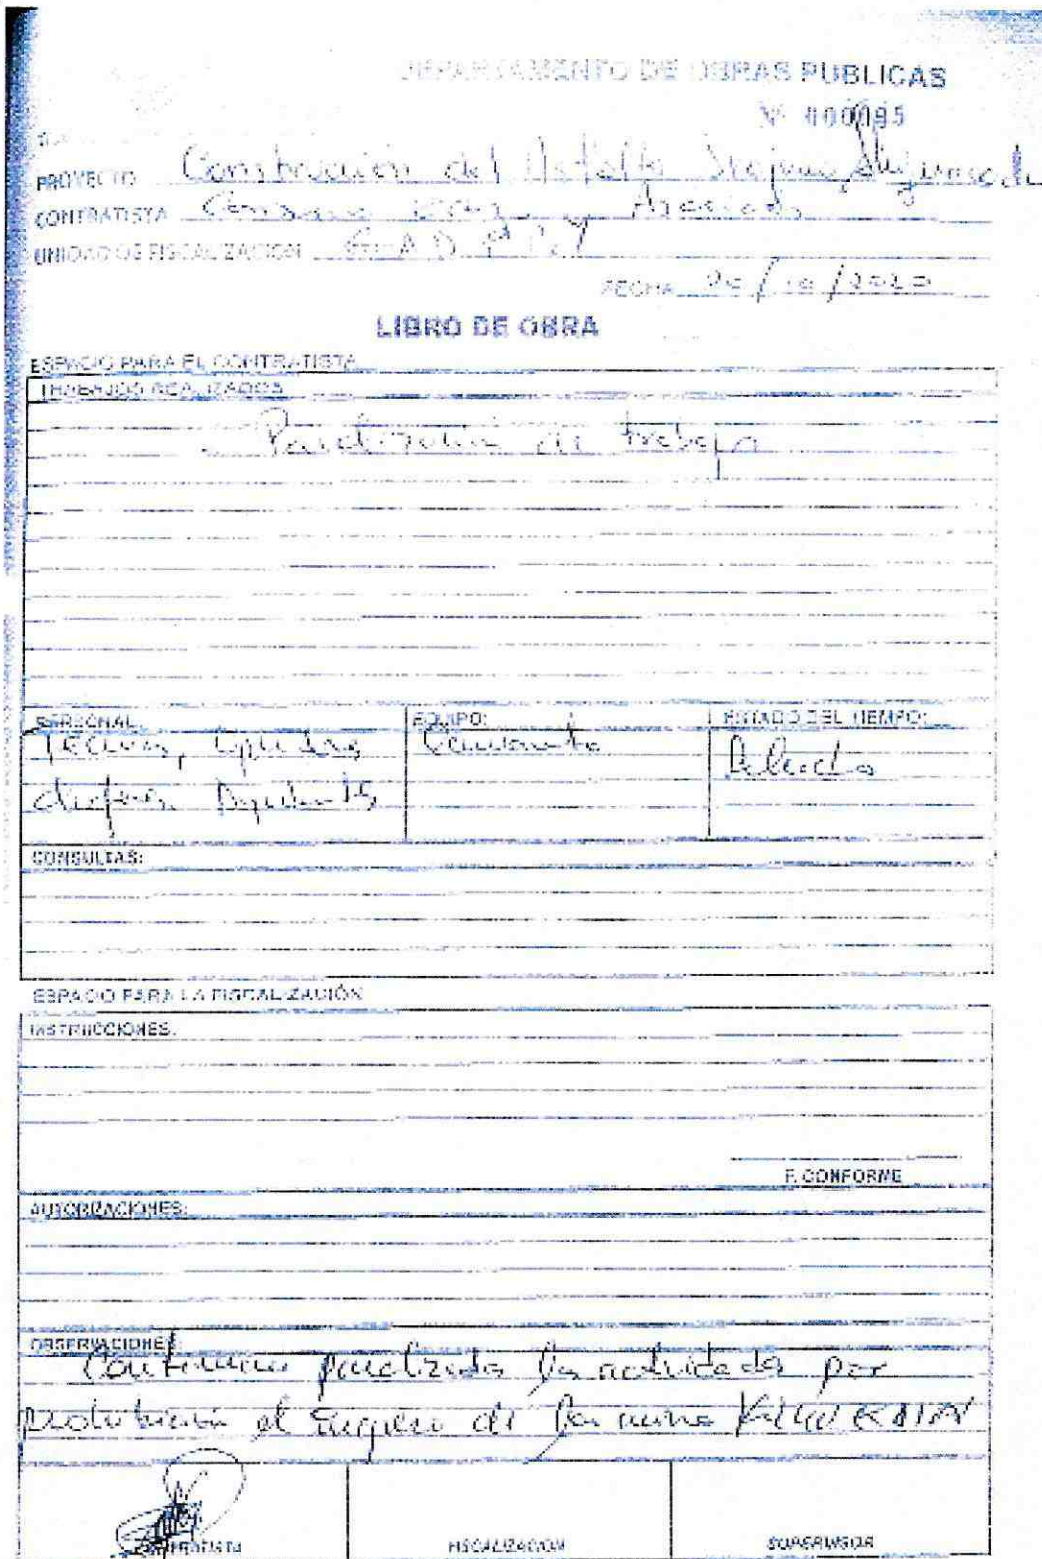 DEPARTAMENTO DE OBRAS PUBLICAS
Nº 000095
PROYECTO Construcción del Asfalto
CONTRATISTA y Asociados
UNIDAD DE FISCALIZACION
FECHA 20/10/2020
LIBRO DE OBRA
ESPACIO PARA EL CONTRATISTA
TRABAJOS REALIZADOS
Paralización de trabajo
PERSONAL: EQUIPO: ESTADO DEL TIEMPO:
Tecnico, Camioneta
choferes. Ayudantes
CONSULTAS:
ESPACIO PARA LA FISCALIZACIÓN
INSTRUCCIONES:
F. CONFORME
AUTORIZACIONES:
OBSERVACIONES:
Continuan paralizadas las actividades por
prohibición el ingreso de la mina
CONTRATISTA FISCALIZACION SUPERVISOR